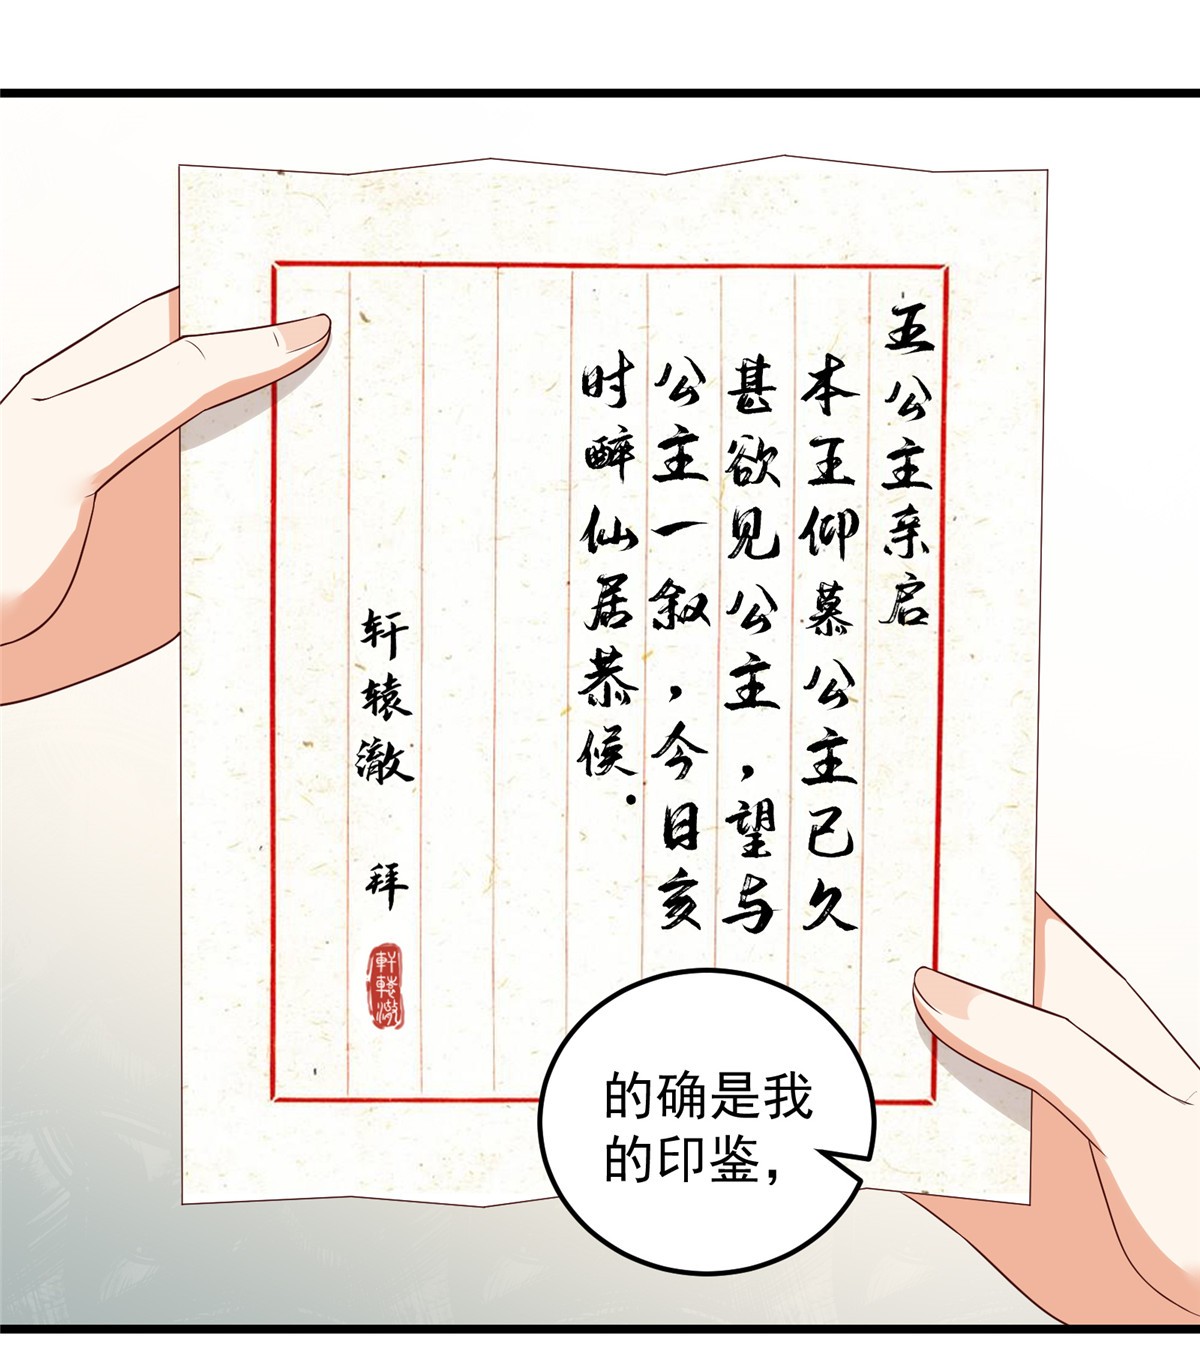 五公主亲启
本王仰慕公主已久
甚欲见公主，望与
公主一叙，今日亥
时醉仙居恭候.
轩辕澈 拜
軒轅澈
的确是我
的印鉴，